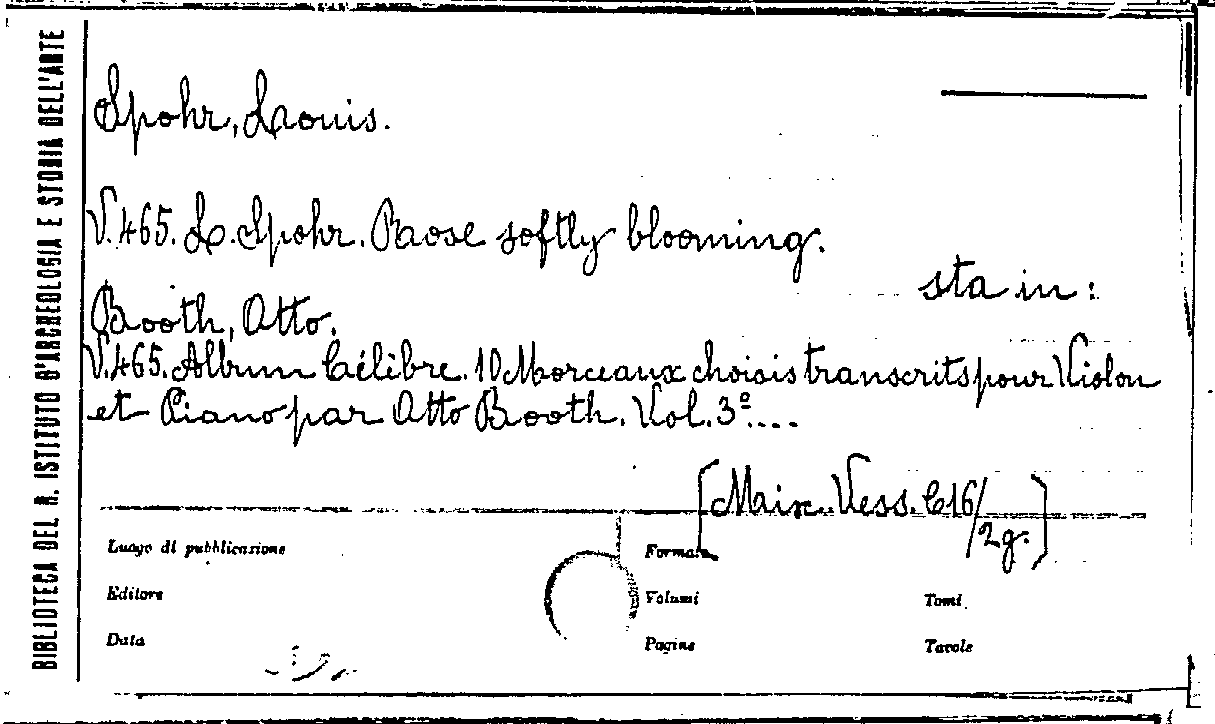 BIBLIOTECA DEL R. ISTITUTO D'ARCHEOLOGIA E STORIA DELL'ARTE
Spohr, Louis.
V.465. L. Spohr. Rose softly blooming.
sta in:
Booth, Otto.
V.465. Album Célèbre. 10 Morceaux choisis transcrits pour Violon
et Piano par Otto Booth. Vol. 3º....
[Maix. Vess. C16/2g.]
Luogo di pubblicazione
Formato
Editore
Volumi
Tomi
Data
Pagine
Tavole